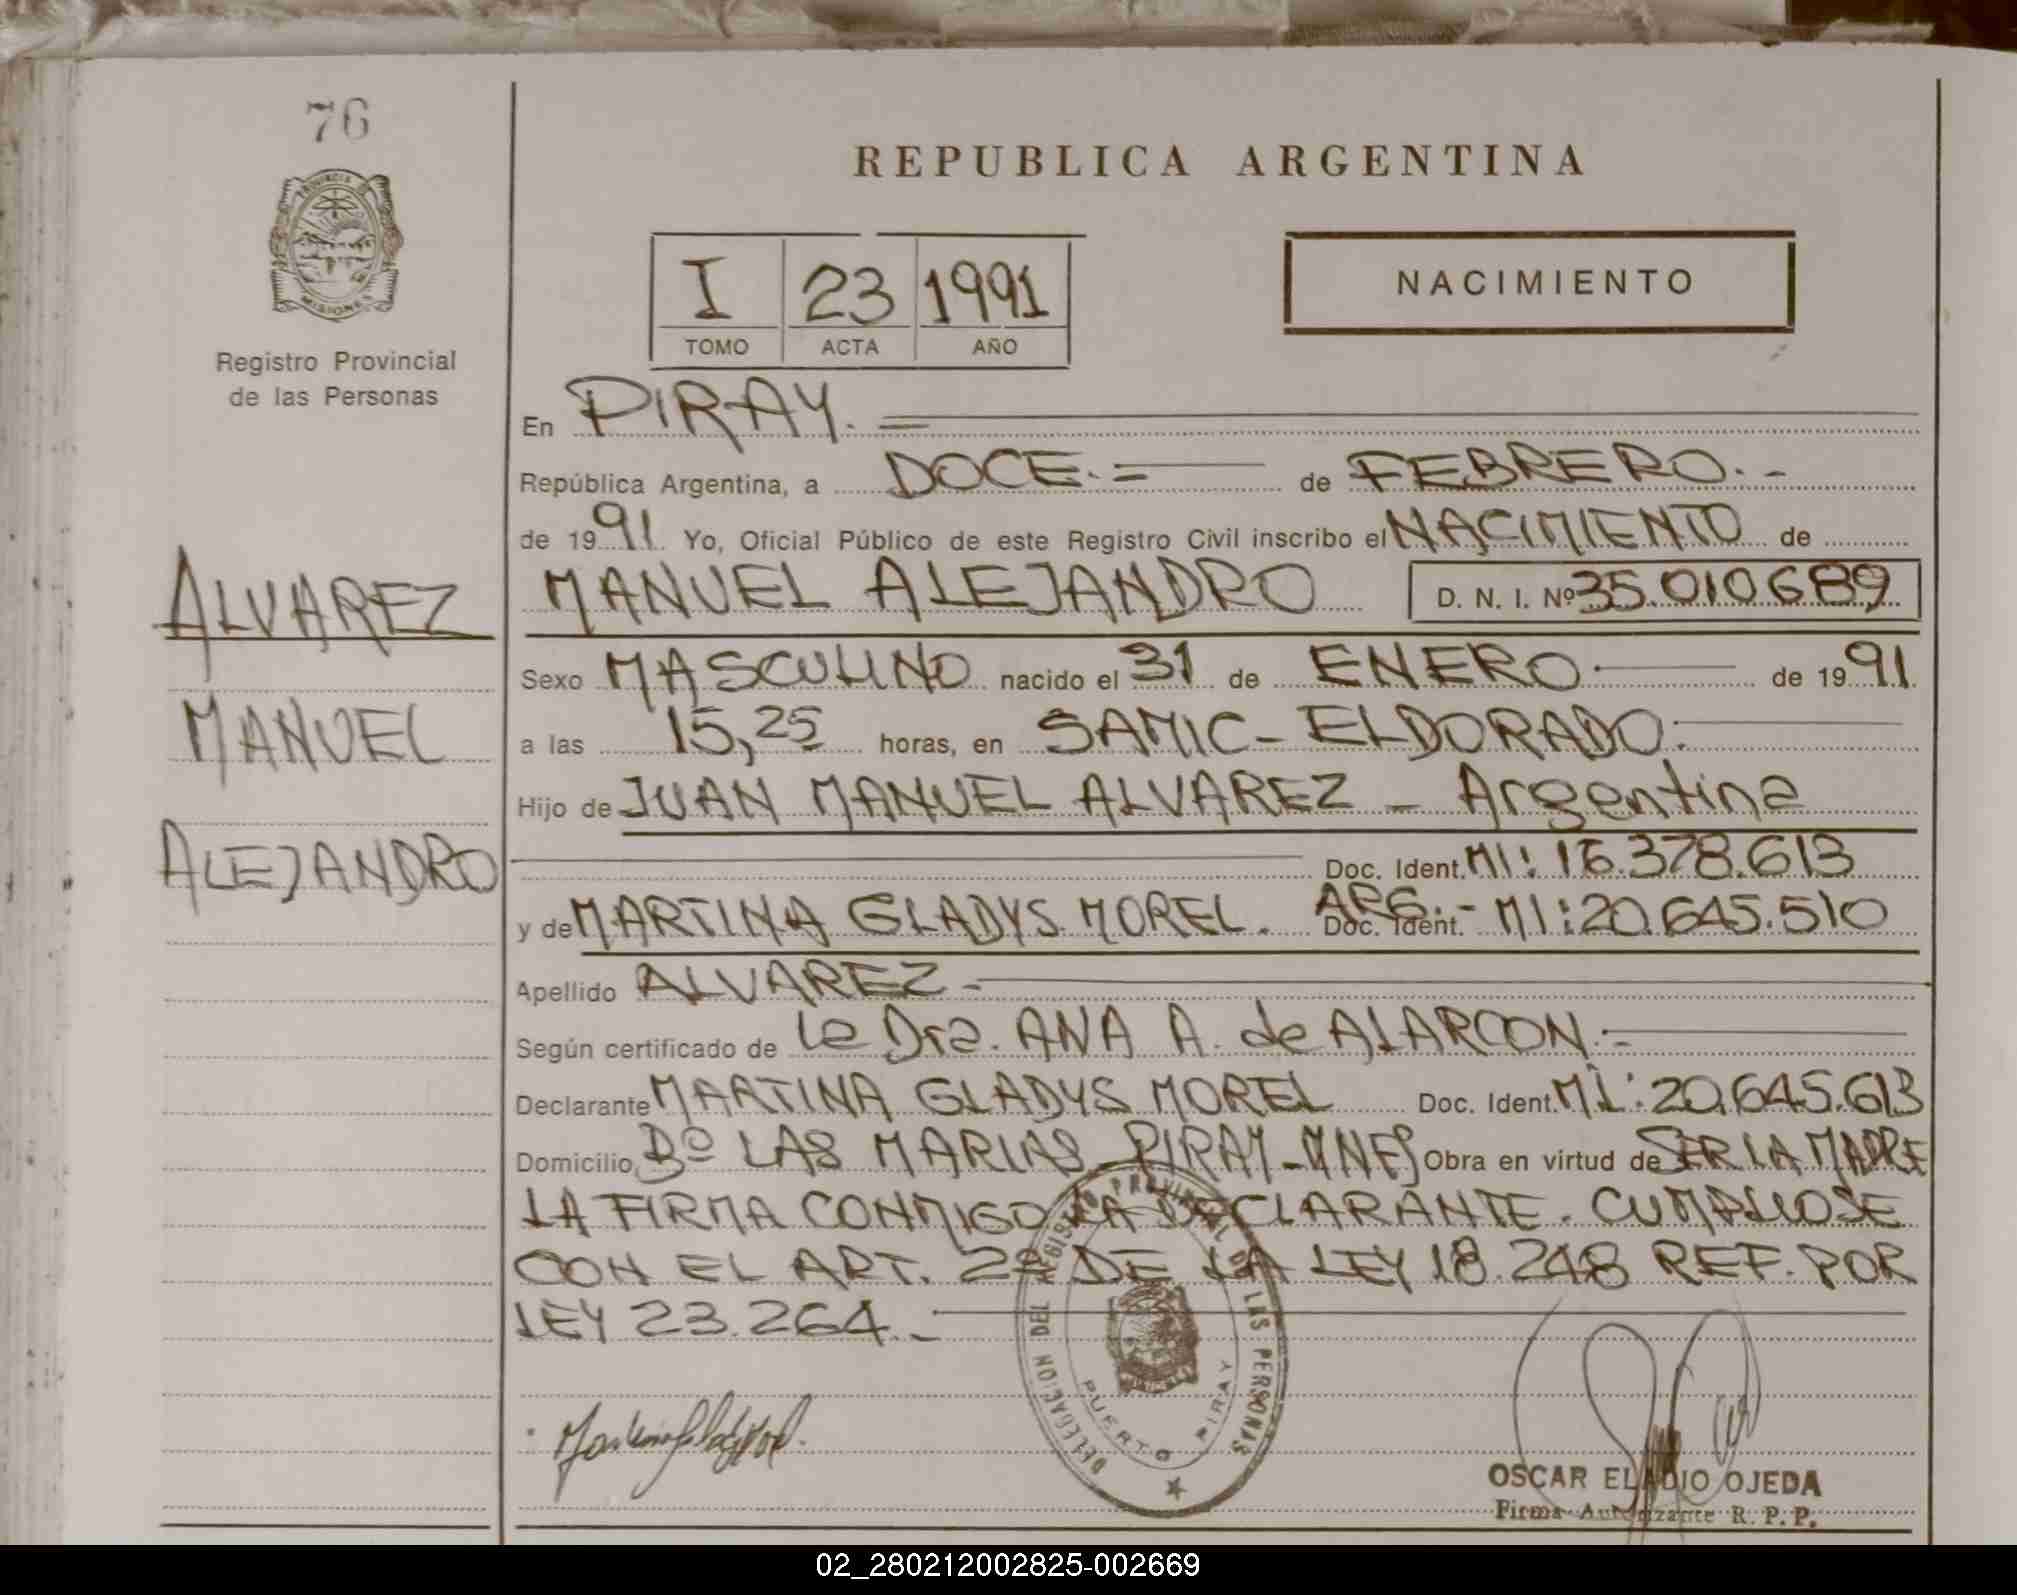 76
PROVINCIA DE
MISIONES
Registro Provincial
de las Personas
ALVAREZ
MANUEL
ALEJANDRO
REPUBLICA ARGENTINA
I 23 1991
TOMO ACTA AÑO
NACIMIENTO
En PIRAY.=
República Argentina, a DOCE.= de FEBRERO.-
de 1991 Yo, Oficial Público de este Registro Civil inscribo el NACIMIENTO de
MANUEL ALEJANDRO D. N. I. Nº 35.010.689
Sexo MASCULINO nacido el 31 de ENERO de 1991
a las 15,25 horas, en SAMIC- ELDORADO.
Hijo de JUAN MANUEL ALVAREZ - Argentina
Doc. Ident. MI: 16.378.613
y de MARTINA GLADYS MOREL. ARG.- Doc. Ident. MI: 20.645.510
Apellido ALVAREZ-
Según certificado de la Dra. ANA A. de ALARCON.-
Declarante MARTINA GLADYS MOREL Doc. Ident. MI: 20.645.613
Domicilio Bº LAS MARIAS PIRAY-MNES Obra en virtud de SER LA MADRE
LA FIRMA CONMIGO LA DECLARANTE. CUMPLIOSE
CON EL ART. 2º DE LA LEY 18.248 REF. POR
LEY 23.264.-
DELEGACION DEL REGISTRO PROVINCIAL DE LAS PERSONAS
PUERTO PIRAY
OSCAR ELADIO OJEDA
Firma Autorizante R. P. P.
02_280212002825-002669